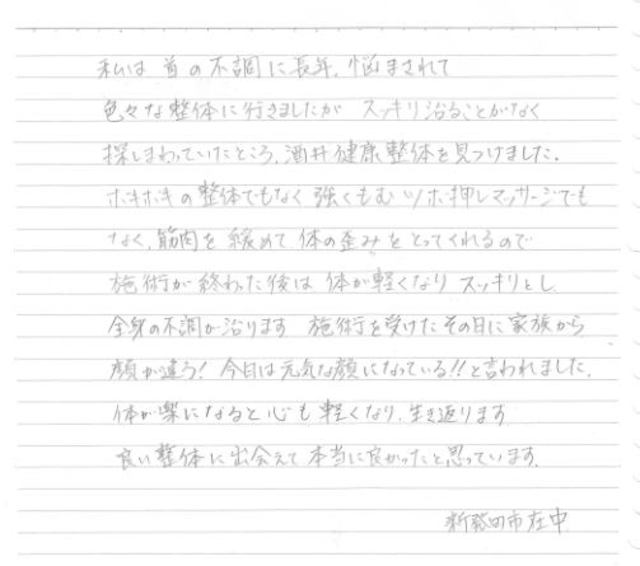 私は 首の不調に長年、悩まされて
色々な整体に行きましたが スッキリ治ることがなく
探しまわっていたところ、酒井健康整体を見つけました。
ボキボキの整体でもなく 強くもむ ツボ押しマッサージでも
なく、筋肉を 緩めて 体の歪みをとってくれるので
施術が終わった後は 体が軽くなり スッキリとし
全身の不調が治ります 施術を受けたその日に家族から
顔が違う! 今日は元気な顔になっている!!と言われました。
体が楽になると心も軽くなり、生き返ります
良い整体に出会えて本当に良かったと思っています。
新発田市在中